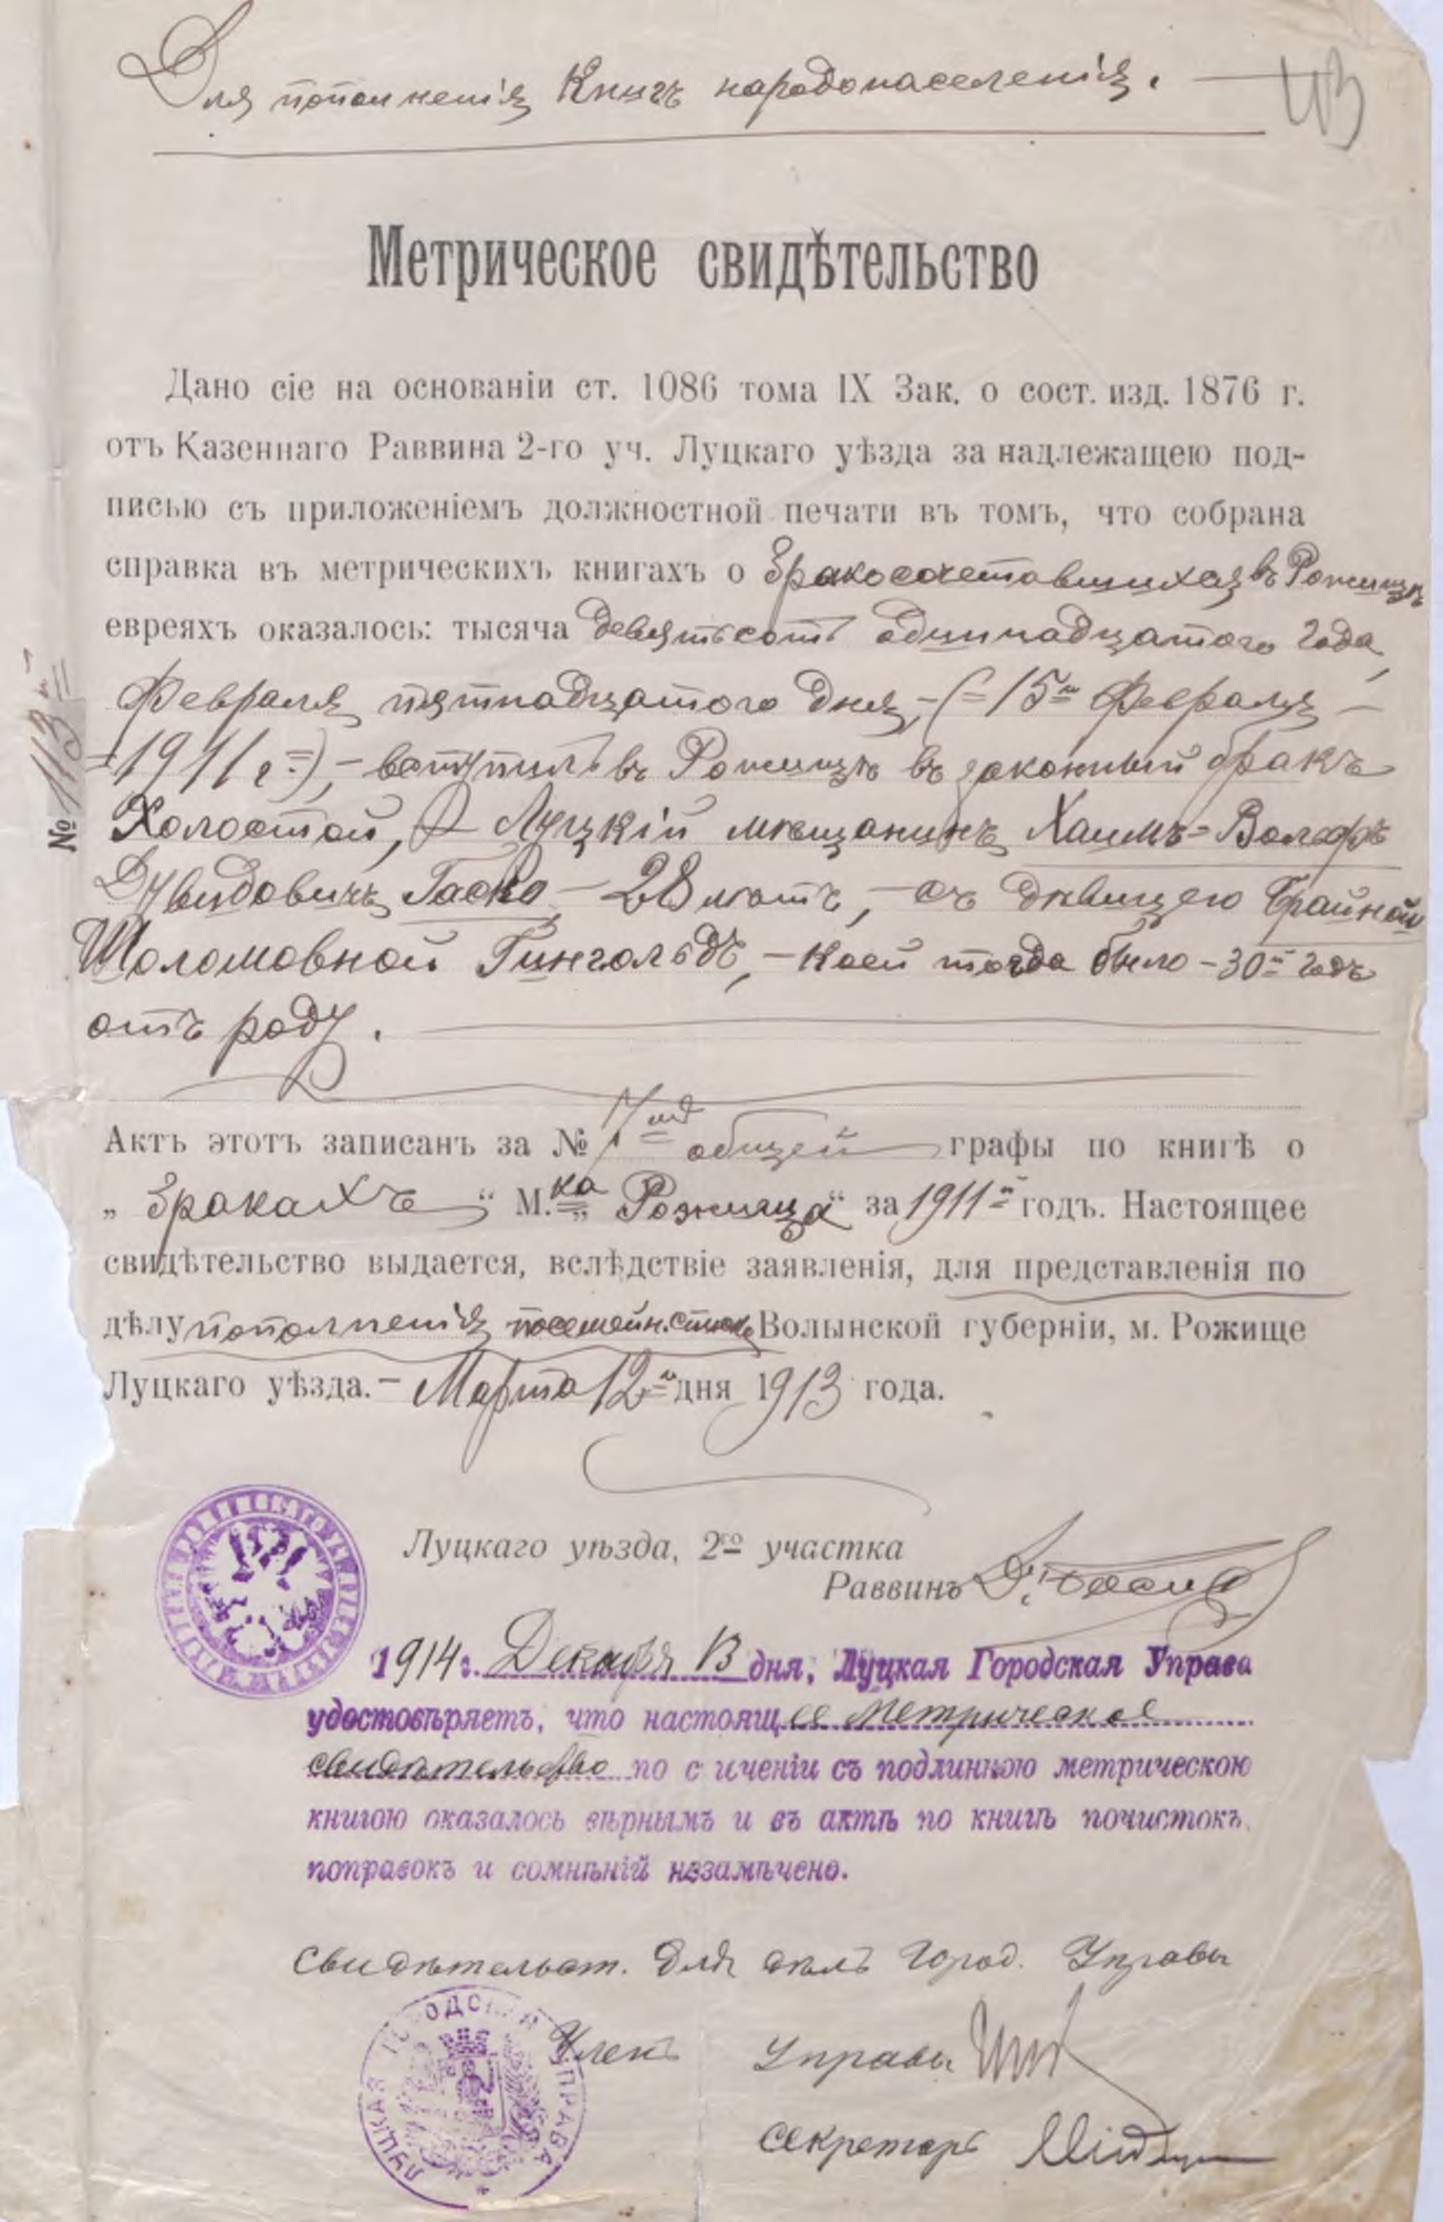 Для пополненія Книгъ народонаселенія.
113
Метрическое свидѣтельство
Дано сіе на основаніи ст. 1086 тома IX Зак. о сост. изд. 1876 г.
отъ Казеннаго Раввина 2-го уч. Луцкаго уѣзда за надлежащею под-
писью съ приложеніемъ должностной печати въ томъ, что собрана
справка въ метрическихъ книгахъ о бракосочетавшихся въ Рожищѣ
евреяхъ оказалось: тысяча девятьсотъ одинадцатого года,
Февраля пятнадцатого дня, – (= 15го Февраля –
= 1911 г. =), – вступилъ въ Рожищѣ въ законный бракъ
Холостой, Луцкій мѣщанинъ Хаимъ-Волфъ
Дувидовичъ Гаско – 28 лѣтъ, – съ дѣвицею Брайной
Шоломовной Гингольдъ, – коей тогда было – 30й годъ
отъ роду.
№ 113й
Актъ этотъ записанъ за № 17мъ общей графы по книгѣ о
„ Бракахъ “ М.ка „ Рожища “ за 1911й годъ. Настоящее
свидѣтельство выдается, вслѣдствіе заявленія, для представленія по
дѣлу пополненія посемейн. списк. Волынской губерніи, м. Рожище
Луцкаго уѣзда. – Марта 12го дня 1913 года.
Луцкаго уѣзда, 2го участка
Раввинъ
1914 г. Декабря 13 дня, Луцкая Городская Управа
удостовѣряетъ, что настоящее Метрическое
свидѣтельство по с иченіи съ подлинною метрическою
книгою оказалось вѣрнымъ и въ актѣ по книгѣ почистокъ,
поправокъ и сомнѣній незамѣчено.
Свидѣтельст. для дѣлъ Город. Управы
Членъ Управы
Секретарь
ЛУЦКАЯ ГОРОДСКАЯ УПРАВА